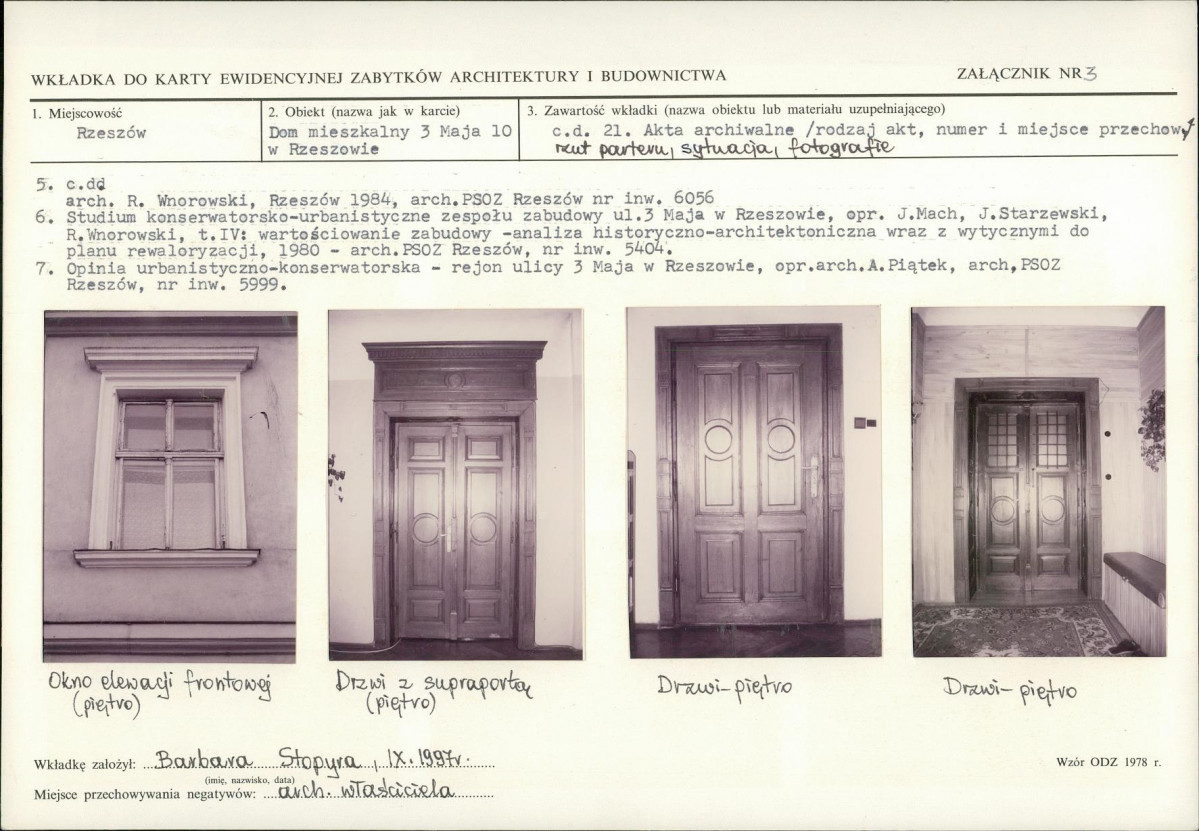 WKŁADKA DO KARTY EWIDENCYJNEJ ZABYTKÓW ARCHITEKTURY I BUDOWNICTWA
ZAŁĄCZNIK NR 3
1. Miejscowość
Rzeszów
2. Obiekt (nazwa jak w karcie)
Dom mieszkalny 3 Maja 10
w Rzeszowie
3. Zawartość wkładki (nazwa obiektu lub materiału uzupełniającego)
c.d. 21. Akta archiwalne /rodzaj akt, numer i miejsce przechow./
rzut parteru, sytuacja, fotografie
5. c.dd
arch. R. Wnorowski, Rzeszów 1984, arch.PSOZ Rzeszów nr inw. 6056
6. Studium konserwatorsko-urbanistyczne zespołu zabudowy ul.3 Maja w Rzeszowie, opr. J.Mach, J.Starzewski,
R.Wnorowski, t.IV: wartościowanie zabudowy -analiza historyczno-architektoniczna wraz z wytycznymi do
planu rewaloryzacji, 1980 - arch.PSOZ Rzeszów, nr inw. 5404.
7. Opinia urbanistyczno-konserwatorska - rejon ulicy 3 Maja w Rzeszowie, opr.arch.A.Piątek, arch,PSOZ
Rzeszów, nr inw. 5999.
Okno elewacji frontowej
(piętro)
Drzwi z supraportą
(piętro)
Drzwi-piętro
Drzwi-piętro
Wkładkę założył: Barbara Stopyra, IX.1997r.
(imię, nazwisko, data)
Miejsce przechowywania negatywów: arch. właściciela
Wzór ODZ 1978 r.